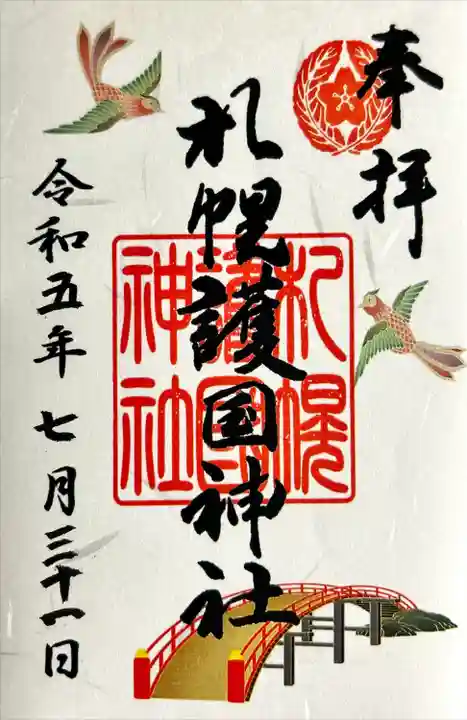 奉拝
札幌護国神社
札幌
護国
神社
令和五年七月三十一日